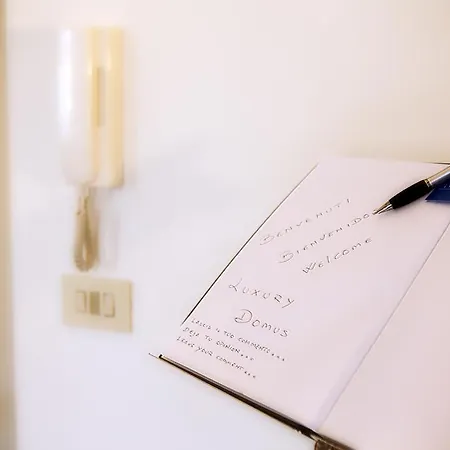 BENVENUTI
BIENVENIDO
WELCOME
LUXURY
DOMUS
LASCIA IL TUO COMMENTO...
DEJA TU OPINION...
LEAVE YOUR COMMENT...